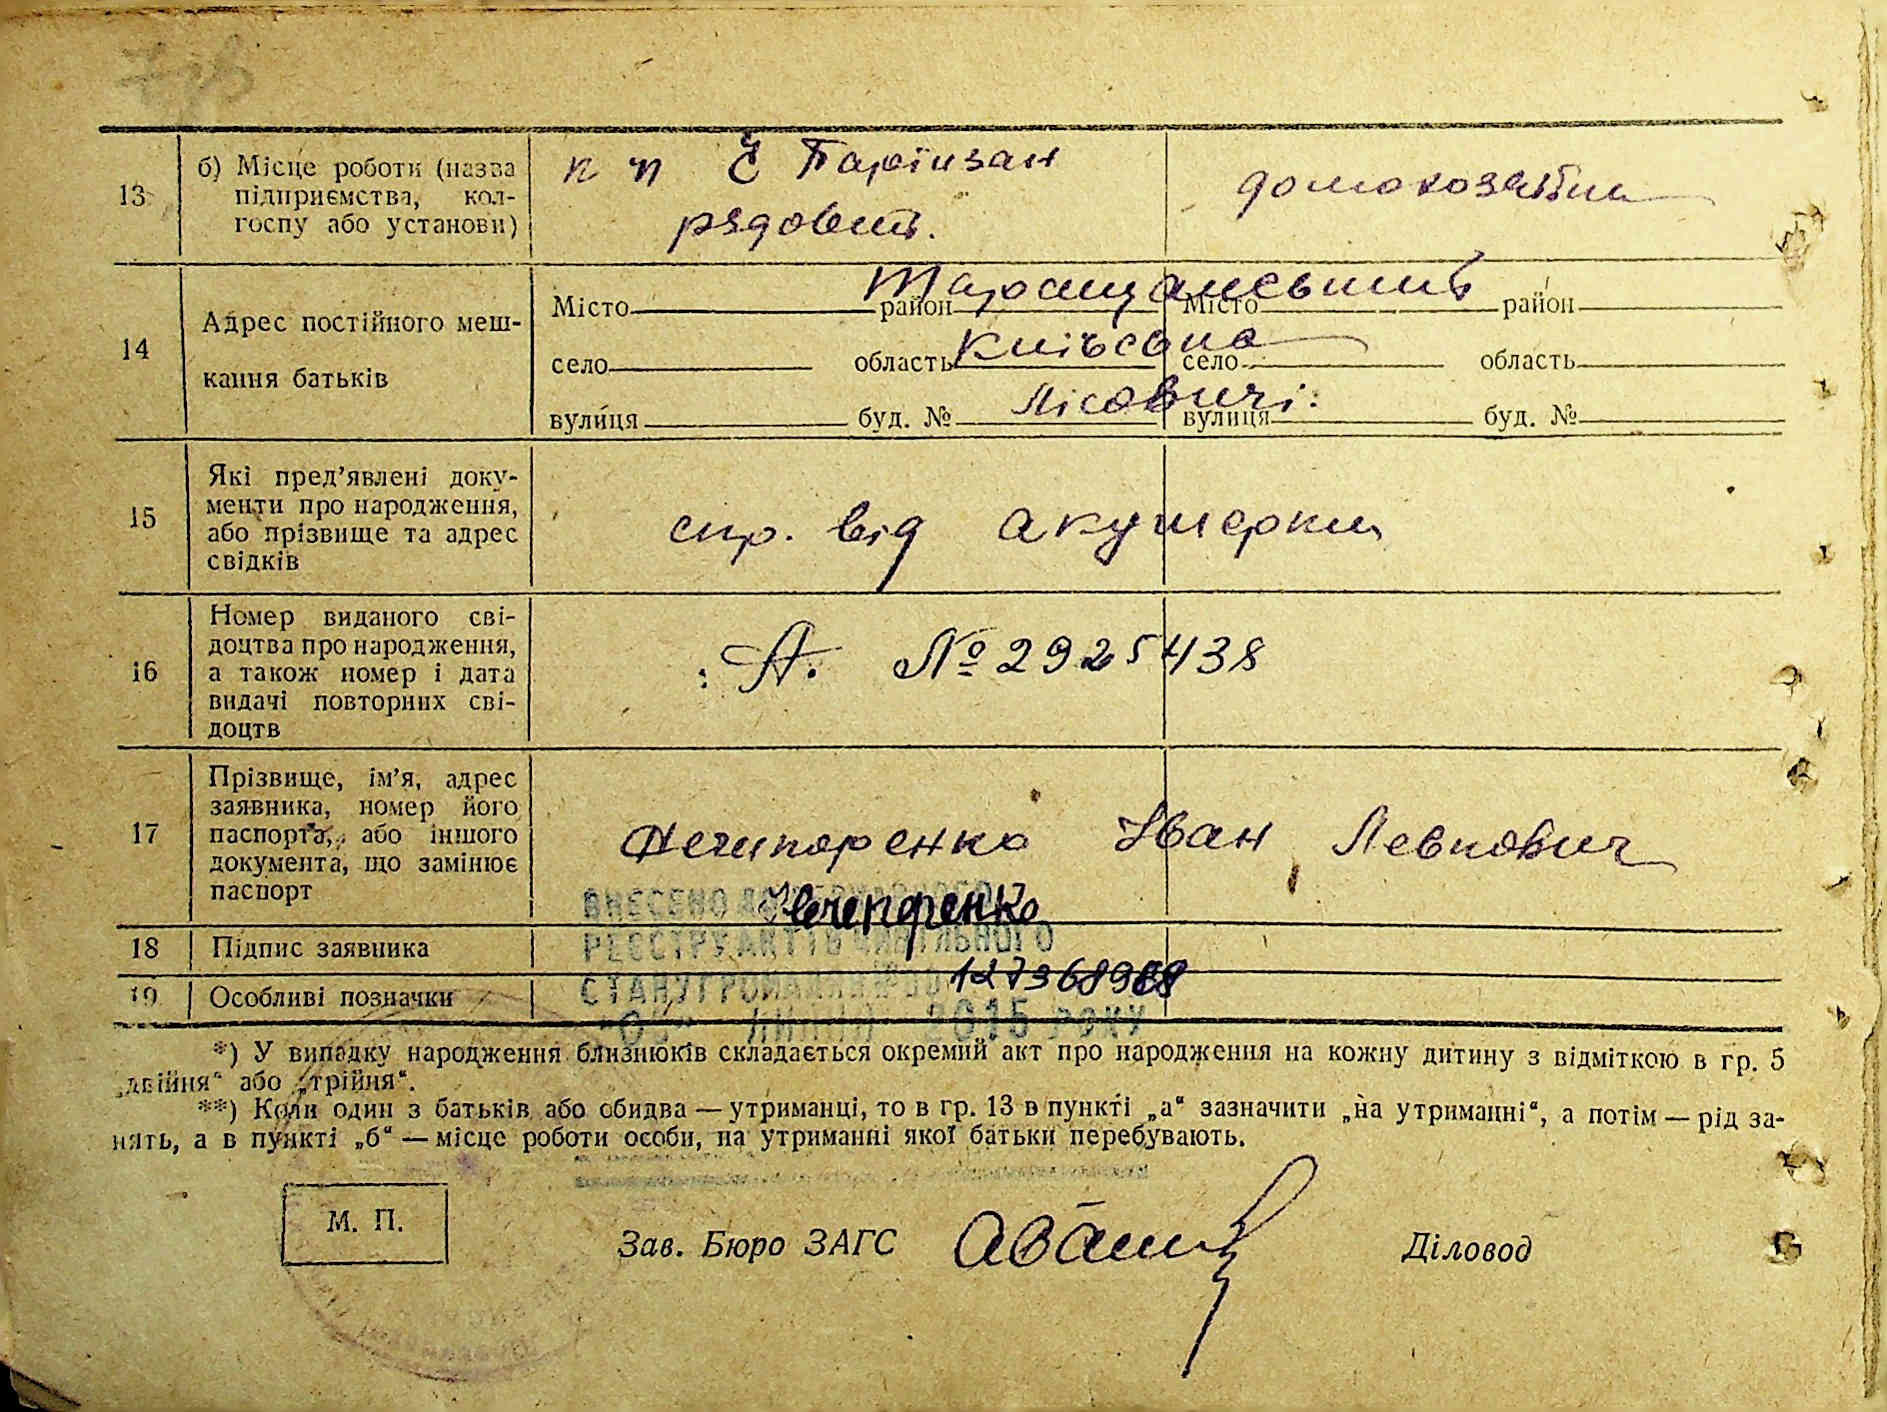 13 б) Місце роботи (назва
підприємства, кол-
госпу або установи)
п п Є Партизан
рядовий.
домохозяйка
14 Адрес постійного меш-
кання батьків
Місто район Місто район
Таращанський
село область село область
Київська
вулиця буд. № вулиця буд. №
Лісовичі.
15 Які пред’явлені доку-
менти про народження,
або прізвище та адрес
свідків
спр. від акушерки
16 Номер виданого сві-
доцтва про народження,
а також номер і дата
видачі повторних сві-
доцтв
А. № 2925438
17 Прізвище, ім’я, адрес
заявника, номер його
паспорта, або іншого
документа, що замінює
паспорт
Нечипоренко Іван Левкович
18 Підпис заявника
Нечипоренко
19 Особливі позначки
ВНЕСЕНО ДО ДЕРЖАВНОГО
РЕЄСТРУ АКТІВ ЦИВІЛЬНОГО
СТАНУ ГРОМАДЯН №
2015 РОКУ
*) У випадку народження близнюків складається окремий акт про народження на кожну дитину з відміткою в гр. 5
„двійня“ або „трійня“.
**) Коли один з батьків або обидва — утриманці, то в гр. 13 в пункті „а“ зазначити „на утриманні“, а потім — рід за-
нять, а в пункті „б“ — місце роботи особи, на утриманні якої батьки перебувають.
М. П.
Зав. Бюро ЗАГС
Діловод